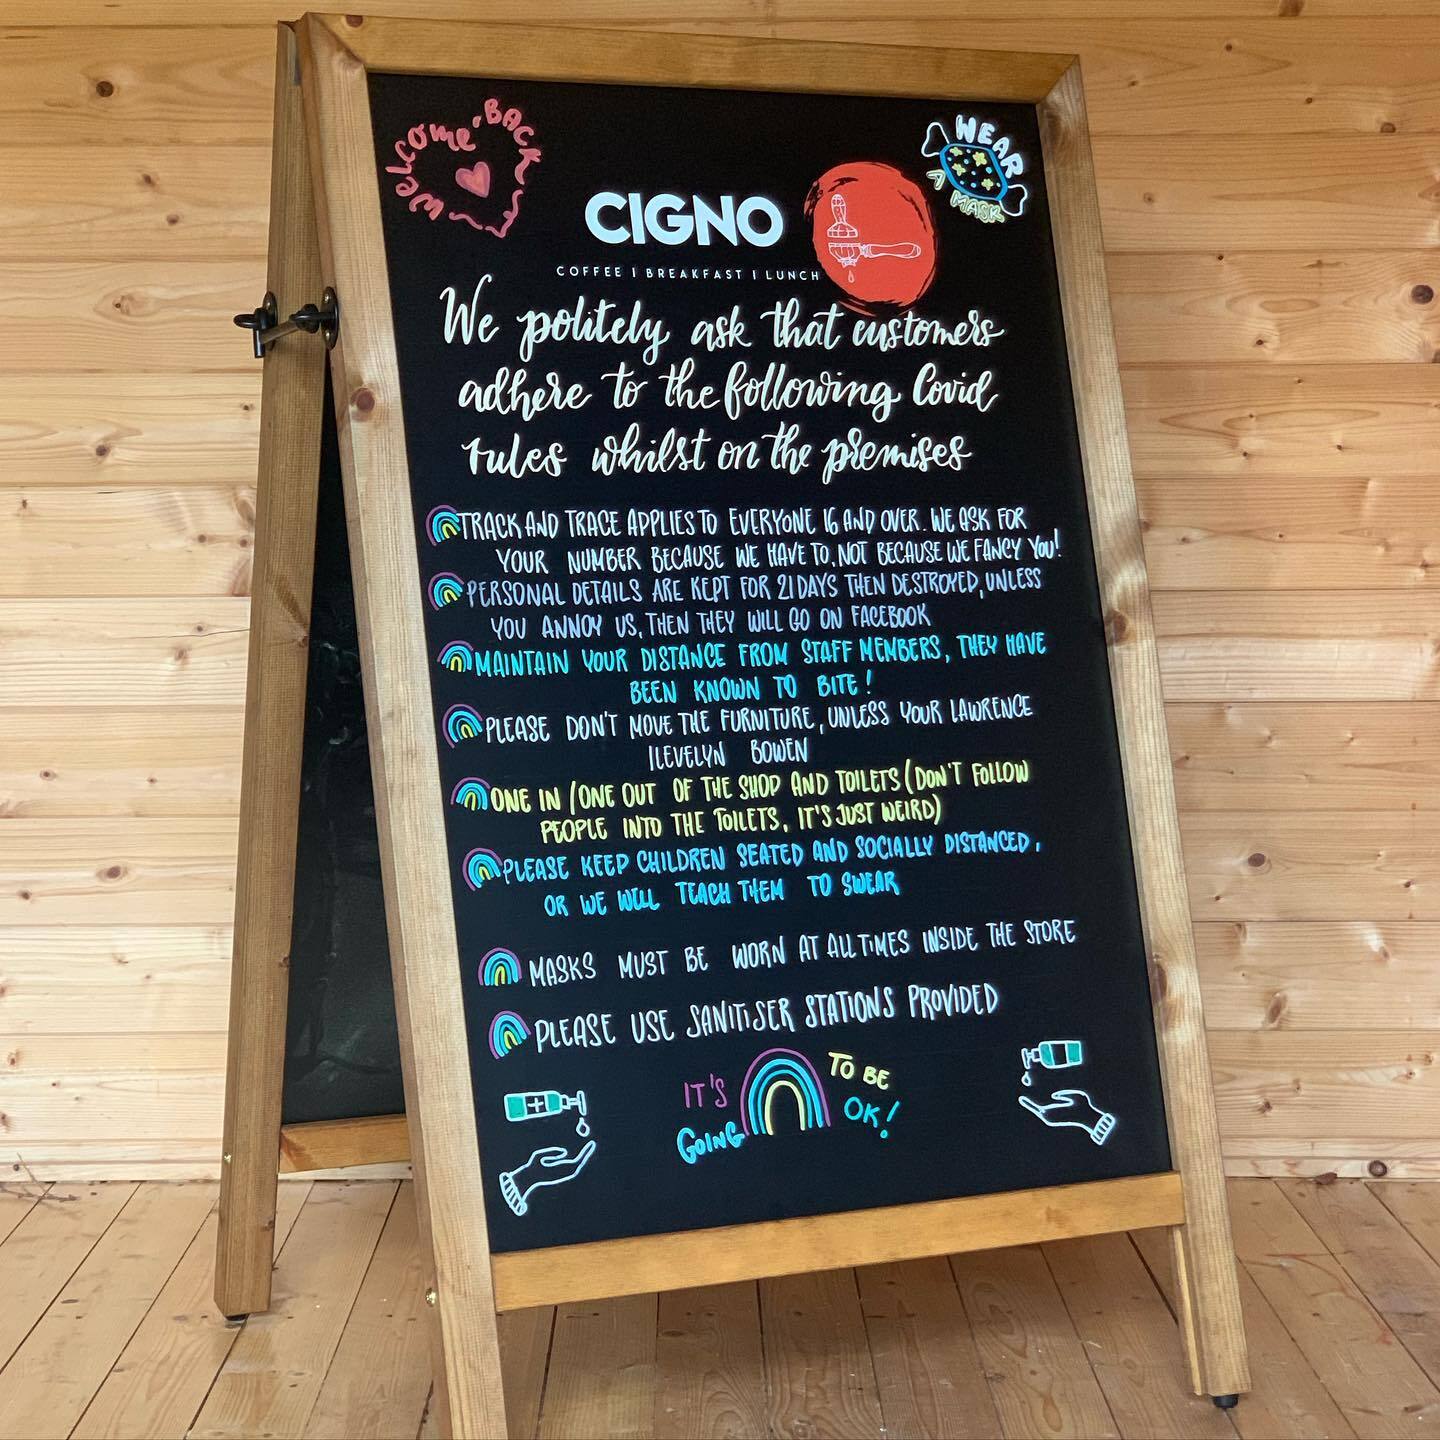 Welcome BACK
WEAR
A MASK
CIGNO
COFFEE | BREAKFAST | LUNCH
We politely ask that customers
adhere to the following Covid
rules whilst on the premises
TRACK AND TRACE APPLIES TO EVERYONE 16 AND OVER. WE ASK FOR
YOUR NUMBER BECAUSE WE HAVE TO, NOT BECAUSE WE FANCY YOU!
PERSONAL DETAILS ARE KEPT FOR 21 DAYS THEN DESTROYED, UNLESS
YOU ANNOY US, THEN THEY WILL GO ON FACEBOOK
MAINTAIN YOUR DISTANCE FROM STAFF MEMBERS, THEY HAVE
BEEN KNOWN TO BITE!
PLEASE DON'T MOVE THE FURNITURE, UNLESS YOUR LAWRENCE
LLEVELYN BOWEN
ONE IN / ONE OUT OF THE SHOP AND TOILETS (DON'T FOLLOW
PEOPLE INTO THE TOILETS, IT'S JUST WEIRD)
PLEASE KEEP CHILDREN SEATED AND SOCIALLY DISTANCED,
OR WE WILL TEACH THEM TO SWEAR
MASKS MUST BE WORN AT ALL TIMES INSIDE THE STORE
PLEASE USE SANITISER STATIONS PROVIDED
IT'S
GOING
TO BE
OK!